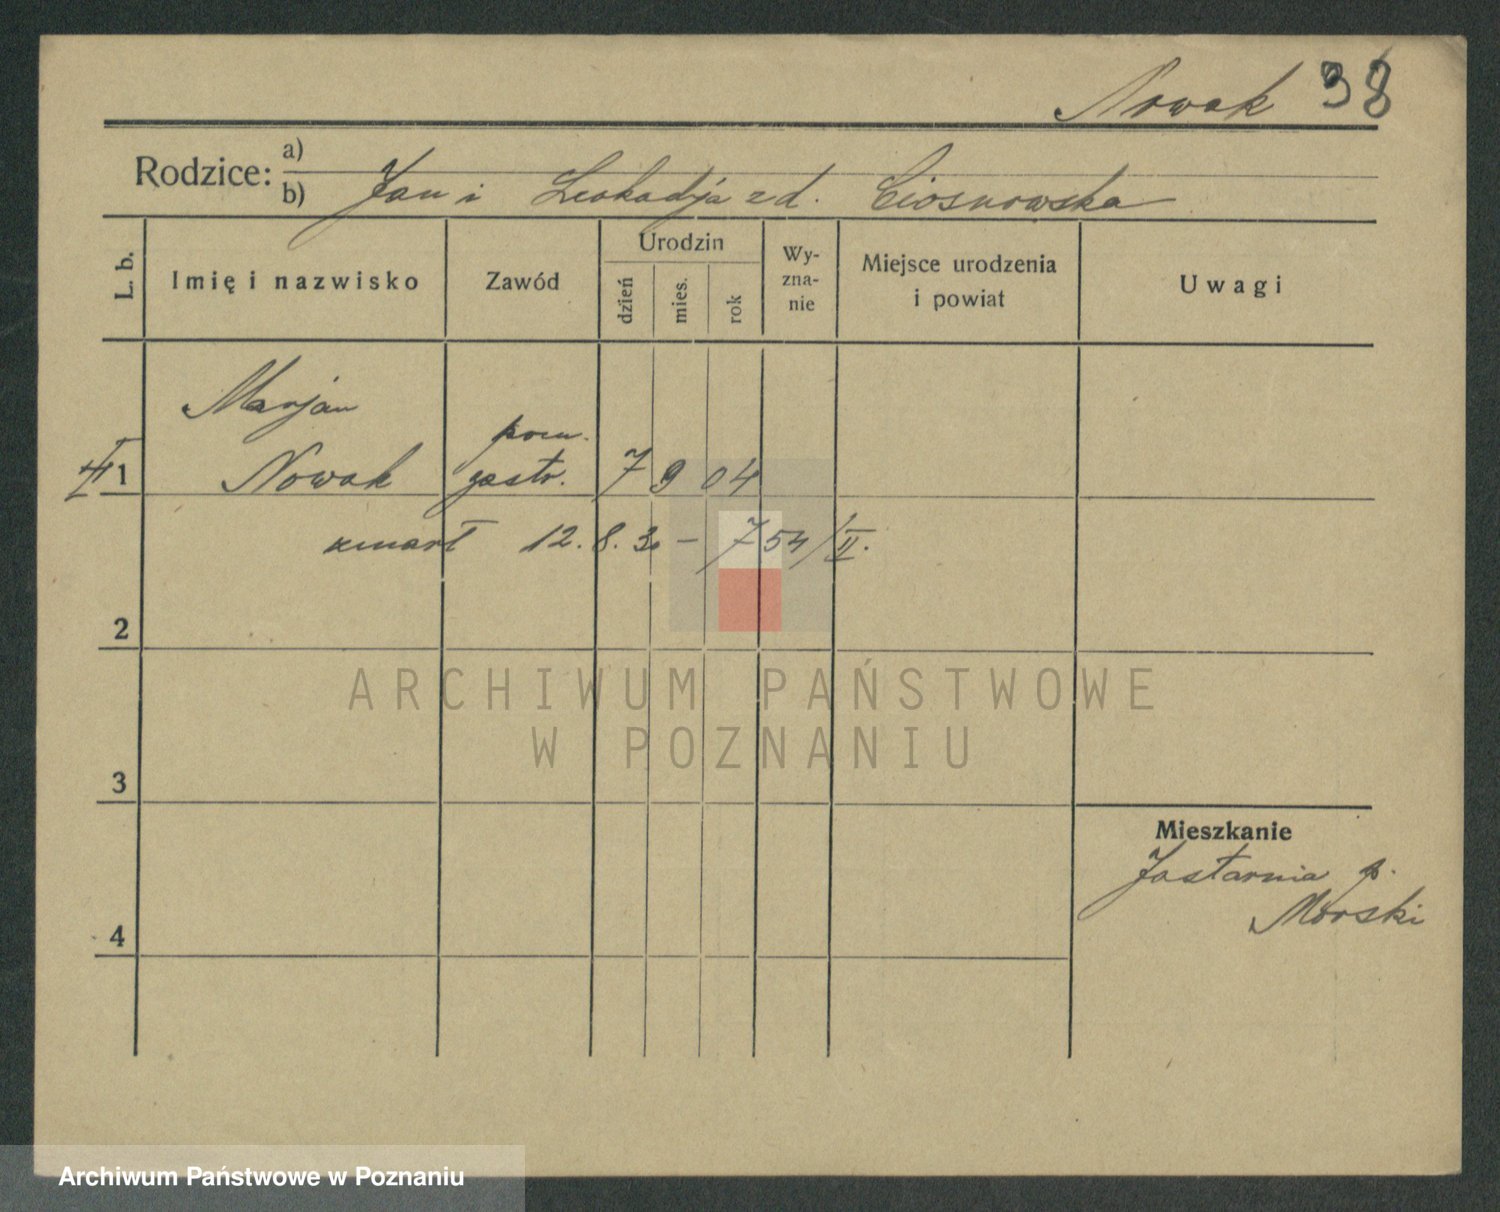 Nowak 38
Rodzice: a)
b) Jan i Leokadja zd. Ciosnowska
L. b.
Imię i nazwisko
Zawód
Urodzin
dzień
mies.
rok
Wy-
zna-
nie
Miejsce urodzenia
i powiat
Uwagi
Marjan
pom.
II 1 Nowak gastr. 7 9 04
umarł 12.8.30 – 754/II.
2
ARCHIWUM PAŃSTWOWE
W POZNANIU
3
Mieszkanie
Jastarnia p.
Morski
4
Archiwum Państwowe w Poznaniu